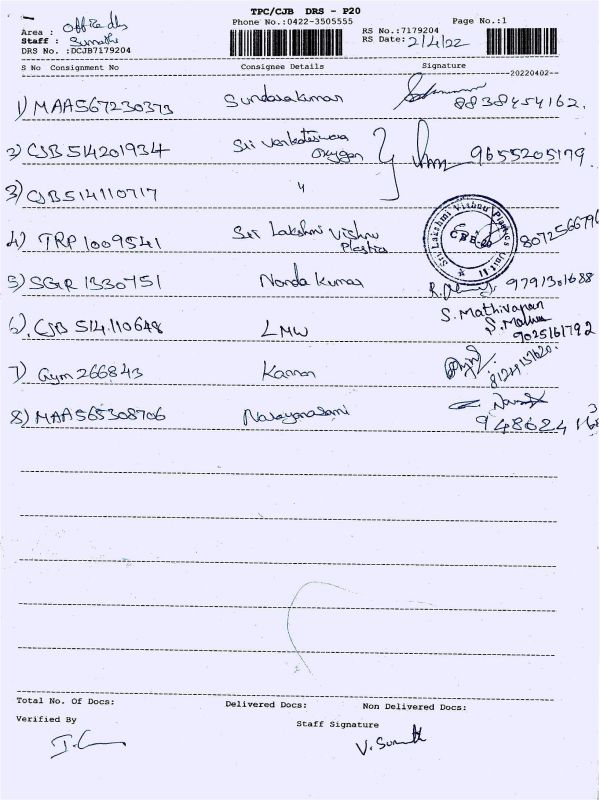 TPC/CJB DRS - P20
Area : Office dls Phone No.:0422-3505555 Page No.:1
Staff : Sumathi RS No.:7179204
DRS No. :DCJB7179204 RS Date: 2/4/22
S No Consignment No Consignee Details Signature
20220402
1) MAA567230373 Sundarakumar 8838454162.
2) CJB 514201934 Sri Venkateswara Oxygen 9655205179
3) CJB514110717 "
4) TRP 1009541 Sri Lakshmi Vishnu Plastics Sri Lakshmi Vishnu Plastics Unit II CBE 80725667
5) SGR 1330751 Nanda Kumar 9791301688
S. Mathivanan
6) CJB 514110648 LMW 9025161792
7) Gym 266843 Kannan
8) MAA565308706 Narayanasami 948624
Total No. Of Docs: Delivered Docs: Non Delivered Docs:
Verified By Staff Signature
V. Sumathi